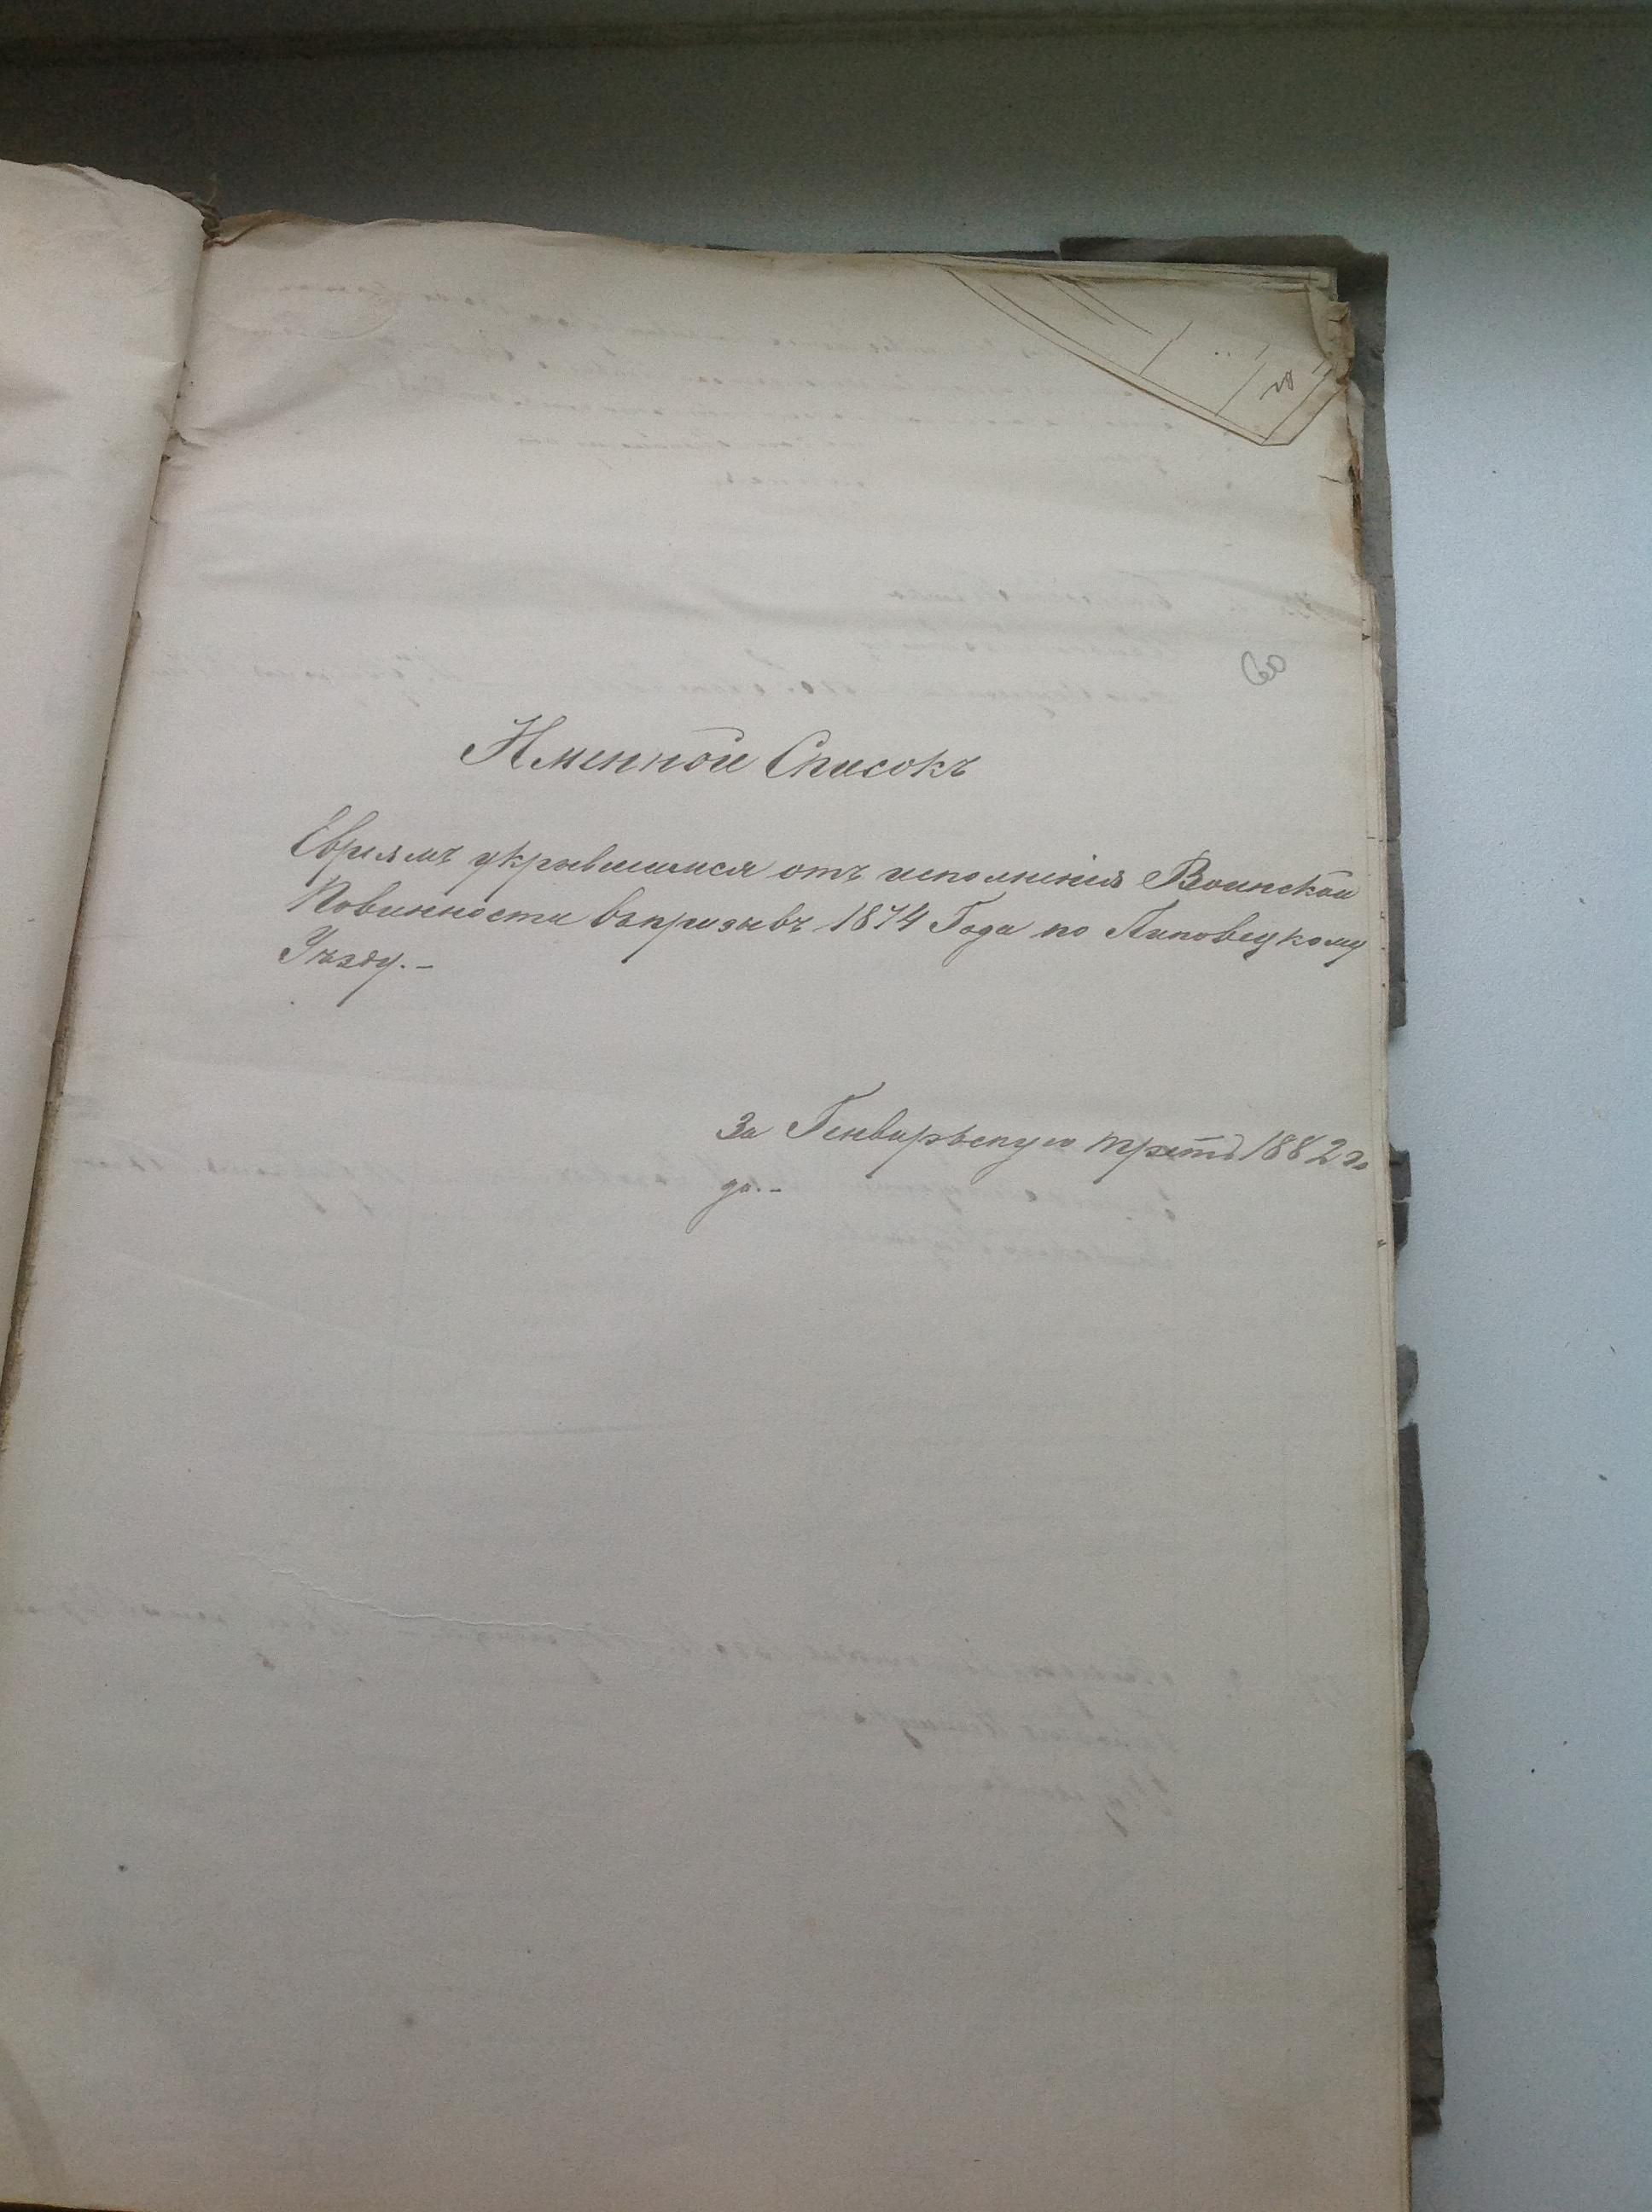 60
Именной Списокъ
Евреямъ укрывшимся отъ исполненія Воинской
Повинности въ призывъ 1874 Года по Липовецкому
Уѣзду.-
За Генварьскую треть 1882 го
да.-